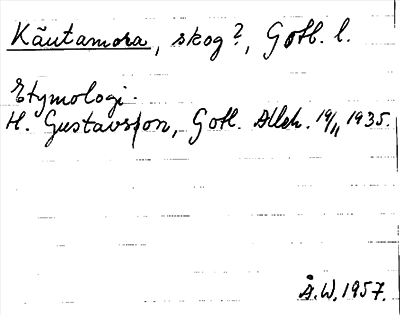 Käutamora, skog?, Gotl. l.
Etymologi.
H. Gustavsson, Gotl. Alleh. 19/11 1935.
Å.W. 1957.